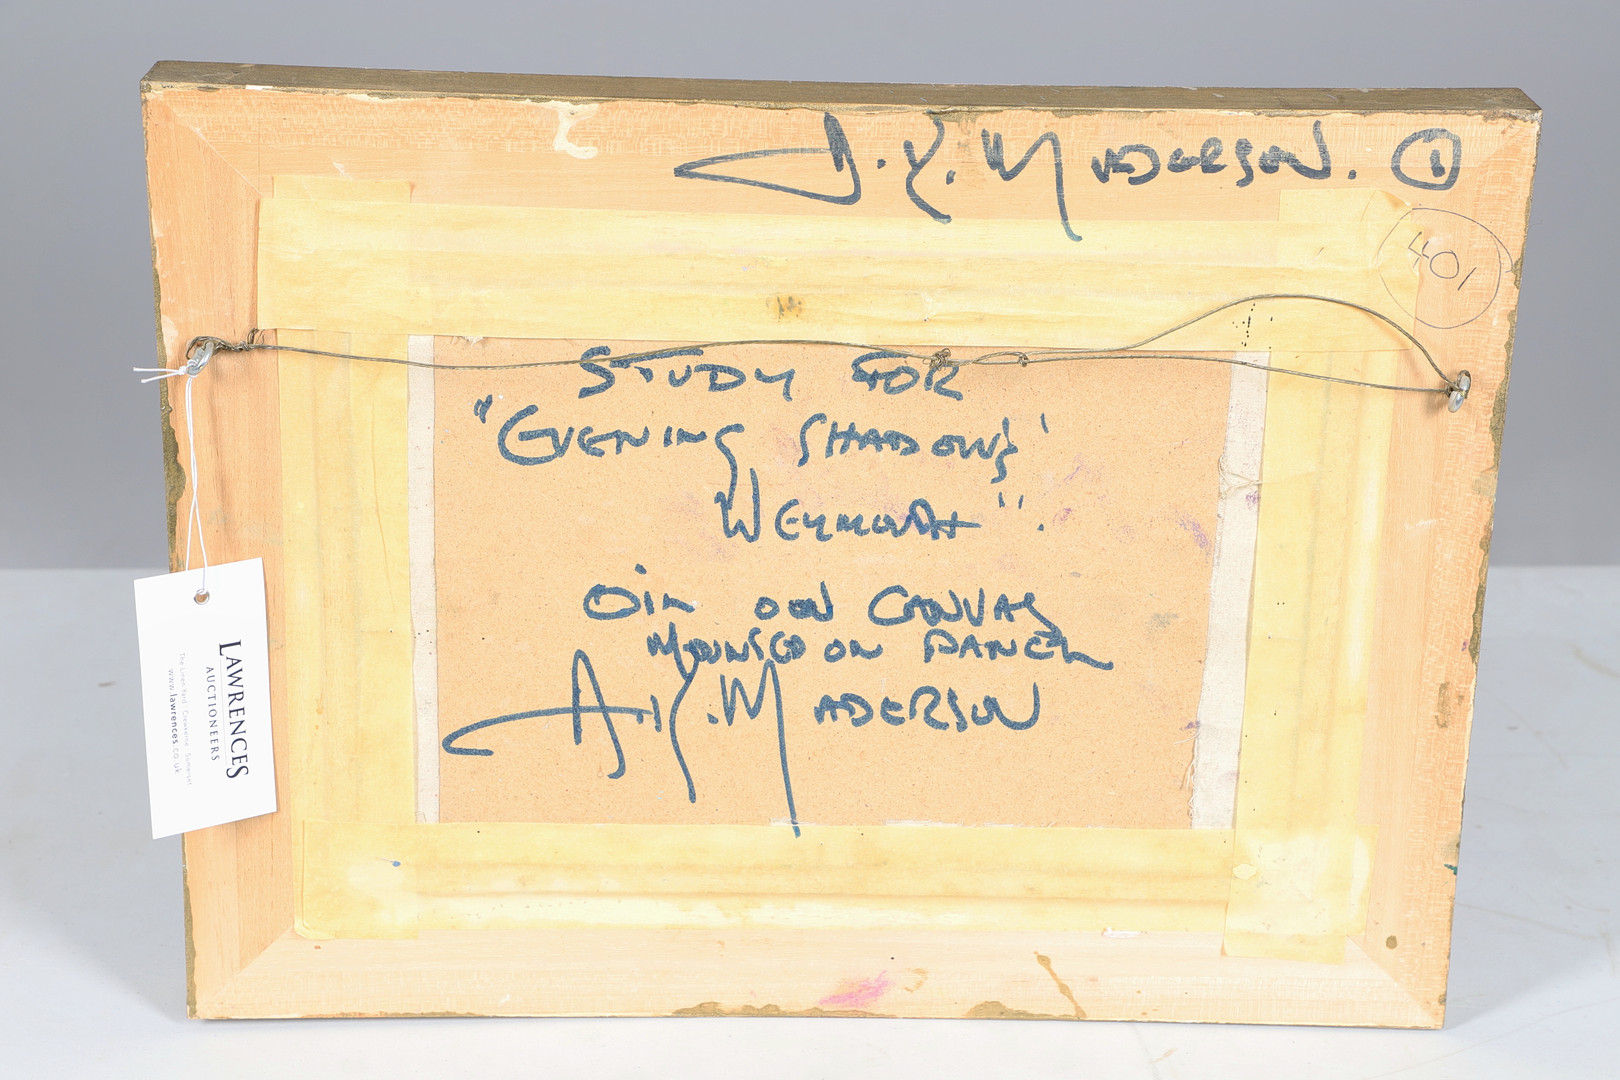 A.K. MADERSON. 1
401
STUDY FOR
"EVENING SHADOWS'
WEYMOUTH".
OIL ON CANVAS
MOUNTED ON PANEL
A.K. MADERSON
LAWRENCES
AUCTIONEERS
The Linen Yard . Crewkerne . Somerset
www.lawrences.co.uk